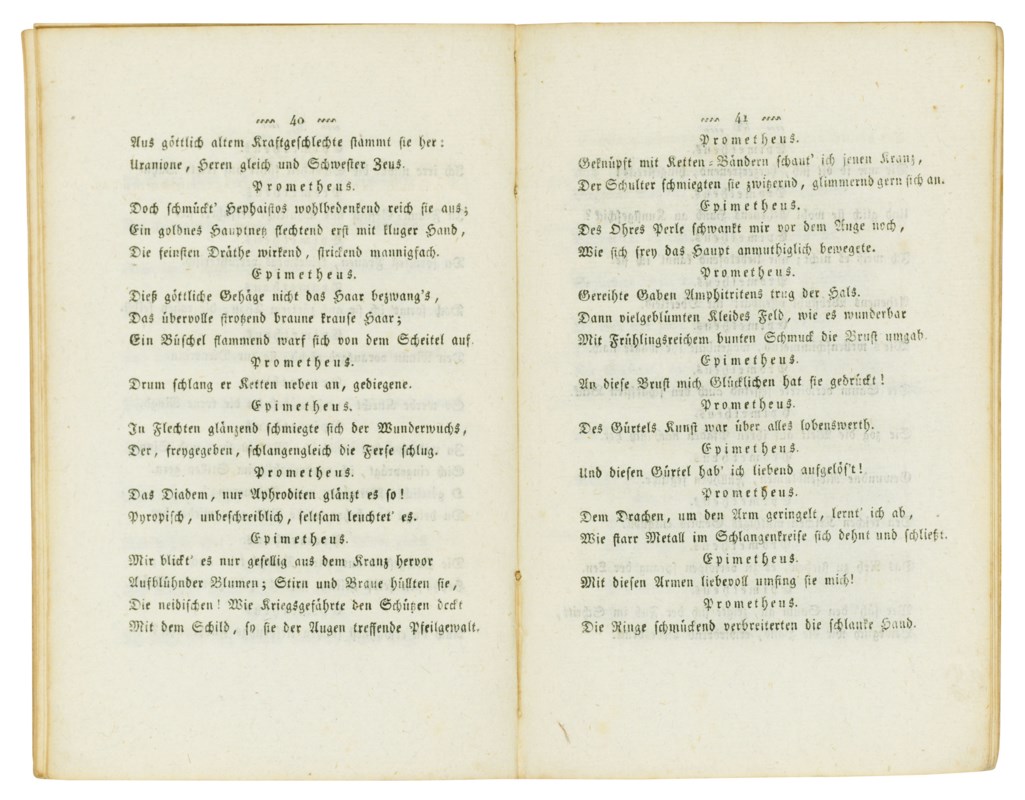 40
Aus göttlich altem Kraftgeschlechte stammt sie her:
Uranione, Heren gleich und Schwester Zeus.
Prometheus.
Doch schmückt' Hephaistos wohlbedenkend reich sie aus;
Ein goldnes Hauptnetz flechtend erst mit kluger Hand,
Die feinsten Dräthe wirkend, strickend mannigfach.
Epimetheus.
Dieß göttliche Gehäge nicht das Haar bezwang's,
Das übervolle strotzend braune krause Haar;
Ein Büschel flammend warf sich von dem Scheitel auf.
Prometheus.
Drum schlang er Ketten neben an, gediegene.
Epimetheus.
In Flechten glänzend schmiegte sich der Wunderwuchs,
Der, freygegeben, schlangengleich die Ferse schlug.
Prometheus.
Das Diadem, nur Aphroditen glänzt es so!
Pyropisch, unbeschreiblich, seltsam leuchtet' es.
Epimetheus.
Mir blickt' es nur gesellig aus dem Kranz hervor
Aufblühnder Blumen; Stirn und Braue hüllten sie,
Die neidischen! Wie Kriegsgefährte den Schützen deckt
Mit dem Schild, so sie der Augen treffende Pfeilgewalt.
41
Prometheus.
Geknüpft mit Ketten-Bändern schaut' ich jenen Kranz,
Der Schulter schmiegten sie zwitzernd, glimmernd gern sich an.
Epimetheus.
Des Ohres Perle schwankt mir vor dem Auge noch,
Wie sich frey das Haupt anmuthiglich bewegete.
Prometheus.
Gereihte Gaben Amphitritens trug der Hals.
Dann vielgeblümten Kleides Feld, wie es wunderbar
Mit Frühlingsreichem bunten Schmuck die Brust umgab.
Epimetheus.
An diese Brust mich Glücklichen hat sie gedrückt!
Prometheus.
Des Gürtels Kunst war über alles lobenswerth.
Epimetheus.
Und diesen Gürtel hab' ich liebend aufgelös't!
Prometheus.
Dem Drachen, um den Arm geringelt, lernt' ich ab,
Wie starr Metall im Schlangenkreise sich dehnt und schließt.
Epimetheus.
Mit diesen Armen liebevoll umfing sie mich!
Prometheus.
Die Ringe schmückend verbreiterten die schlanke Hand.